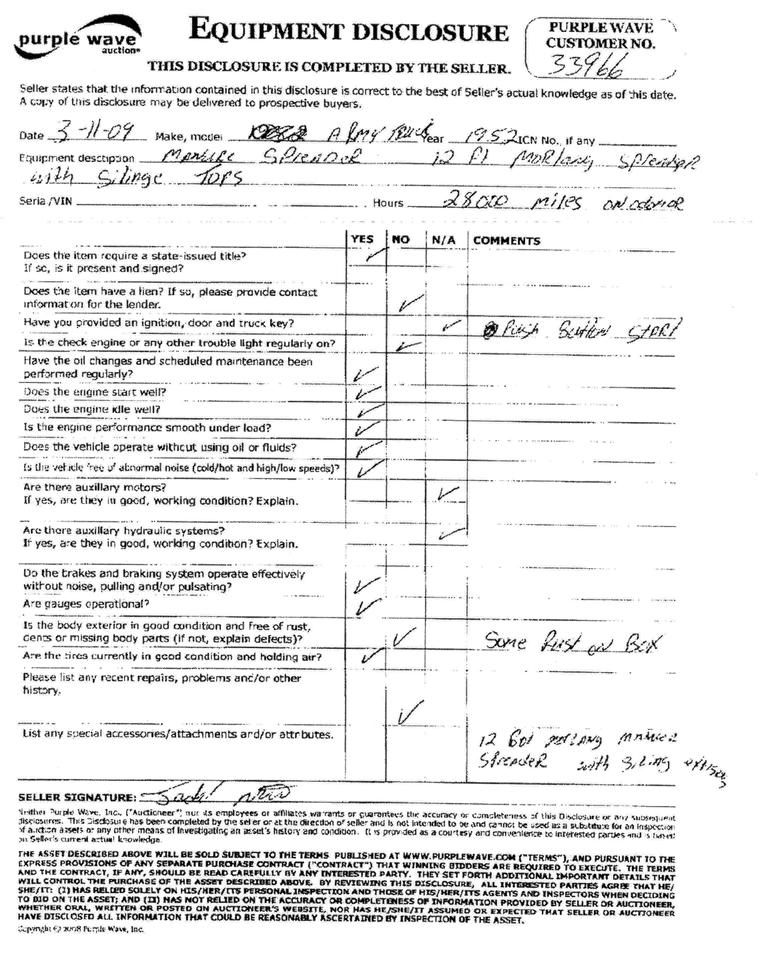 purple wave
auction
EQUIPMENT DISCLOSURE
THIS DISCLOSURE IS COMPLETED BY THE SELLER.
PURPLE WAVE
CUSTOMER NO.
33966
Seller states that the information contained in this disclosure is correct to the best of Seller's actual knowledge as of this date.
A copy of this disclosure may be delivered to prospective buyers.
Date 3-11-09 Make, model ARMY Truck Year 1952 ICN No., if any
Equipment description Manure Spreader 12 Ft Spreader
with Silinge Tops
Serial/VIN Hours 28000 miles on
YES NO N/A COMMENTS
Does the item require a state-issued title? ✓
If so, is it present and signed?
Does the item have a lien? If so, please provide contact
information for the lender. ✓
Have you provided an ignition, door and truck key? ✓ Push Button START
Is the check engine or any other trouble light regularly on? ✓
Have the oil changes and scheduled maintenance been
performed regularly? ✓
Does the engine start well? ✓
Does the engine idle well? ✓
Is the engine performance smooth under load? ✓
Does the vehicle operate without using oil or fluids? ✓
Is the vehicle free of abnormal noise (cold/hot and high/low speeds)? ✓
Are there auxillary motors? ✓
If yes, are they in good, working condition? Explain.
Are there auxillary hydraulic systems? ✓
If yes, are they in good, working condition? Explain.
Do the brakes and braking system operate effectively
without noise, pulling and/or pulsating? ✓
Are gauges operational? ✓
Is the body exterior in good condition and free of rust,
dents or missing body parts (if not, explain defects)? ✓ Some Rust on Box
Are the tires currently in good condition and holding air? ✓
Please list any recent repairs, problems and/or other
history. ✓
List any special accessories/attachments and/or attributes. 12
Spreader with Siling
SELLER SIGNATURE:
Neither Purple Wave, Inc. ("Auctioneer") nor its employees or affiliates warrants or guarantees the accuracy or completeness of this Disclosure or any subsequent
disclosures. This Disclosure has been completed by the seller or at the direction of seller and is not intended to be and cannot be used as a substitute for an inspection
of auction assets or any other means of investigating an asset's history and condition. It is provided as a courtesy and convenience to interested parties and is based
on Seller's current actual knowledge.
THE ASSET DESCRIBED ABOVE WILL BE SOLD SUBJECT TO THE TERMS PUBLISHED AT WWW.PURPLEWAVE.COM ("TERMS"), AND PURSUANT TO THE
EXPRESS PROVISIONS OF ANY SEPARATE PURCHASE CONTRACT ("CONTRACT") THAT WINNING BIDDERS ARE REQUIRED TO EXECUTE. THE TERMS
AND THE CONTRACT, IF ANY, SHOULD BE READ CAREFULLY BY ANY INTERESTED PARTY. THEY SET FORTH ADDITIONAL IMPORTANT DETAILS THAT
WILL CONTROL THE PURCHASE OF THE ASSET DESCRIBED ABOVE. BY REVIEWING THIS DISCLOSURE, ALL INTERESTED PARTIES AGREE THAT HE/
SHE/IT: (I) HAS RELIED SOLELY ON HIS/HER/ITS PERSONAL INSPECTION AND THOSE OF HIS/HER/ITS AGENTS AND INSPECTORS WHEN DECIDING
TO BID ON THE ASSET; AND (II) HAS NOT RELIED ON THE ACCURACY OR COMPLETENESS OF INFORMATION PROVIDED BY SELLER OR AUCTIONEER,
WHETHER ORAL, WRITTEN OR POSTED ON AUCTIONEER'S WEBSITE, NOR HAS HE/SHE/IT ASSUMED OR EXPECTED THAT SELLER OR AUCTIONEER
HAVE DISCLOSED ALL INFORMATION THAT COULD BE REASONABLY ASCERTAINED BY INSPECTION OF THE ASSET.
Copyright © 2008 Purple Wave, Inc.